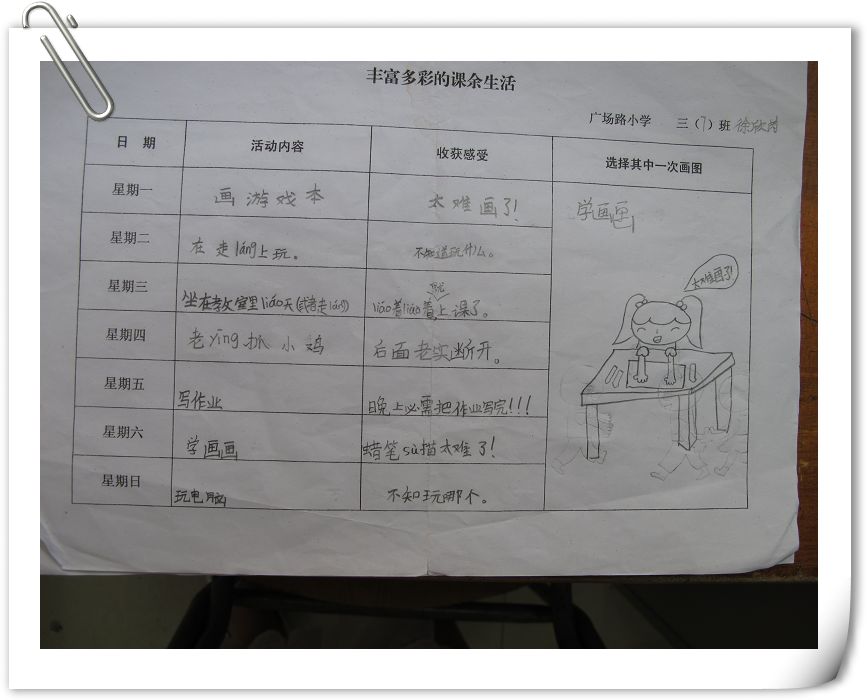 丰富多彩的课余生活
广场路小学 三（7）班 徐欣
日 期 活动内容 收获感受 选择其中一次画图
星期一 画游戏本 太难画了！
学画画
星期二 在走láng上玩。 不知道玩什么。
太难画了！
就
星期三 坐在教室里liáo天（或者走láng） liáo着liáo着上课了。
星期四 老yīng抓小鸡 后面老实断开。
星期五 写作业 晚上必需把作业写完！！！
星期六 学画画 蜡笔sù描太难了！
星期日 玩电脑 不知玩哪个。